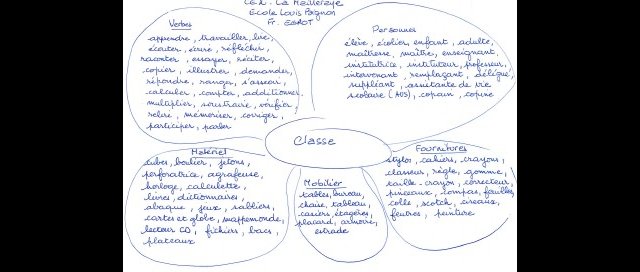 CE2 - La Meilleraye
Ecole Louis Pagnon
Fr. EGROT
Verbes
apprendre, travailler, lire,
écouter, écrire, réfléchir,
raconter, essayer, réciter,
copier, illustrer, demander,
répondre, ranger, s'asseoir,
calculer, compter, additionner,
multiplier, soustraire, vérifier,
relire, mémoriser, corriger,
participer, parler
Personnes
élève, écolier, enfant, adulte,
maîtresse, maître, enseignant,
institutrice, instituteur, professeur,
intervenant, remplaçant, délégué,
suppléant, assistante de vie
scolaire (AVS), copain, copine
Classe
Matériel
cubes, boulier, jetons,
perforatrice, agrafeuse,
horloge, calculette,
livres, dictionnaires,
abaque, jeux, sabliers,
cartes et globe, mappemonde,
lecteur CD, fichiers, bacs,
plateaux
Mobilier
tables, bureau,
chaise, tableau,
casiers, étagères,
placard, armoire,
estrade
Fournitures
stylos, cahiers, crayons,
classeur, règle, gomme,
taille-crayon, correcteur,
pinceaux, compas, feuilles,
colle, scotch, ciseaux,
feutres, peinture